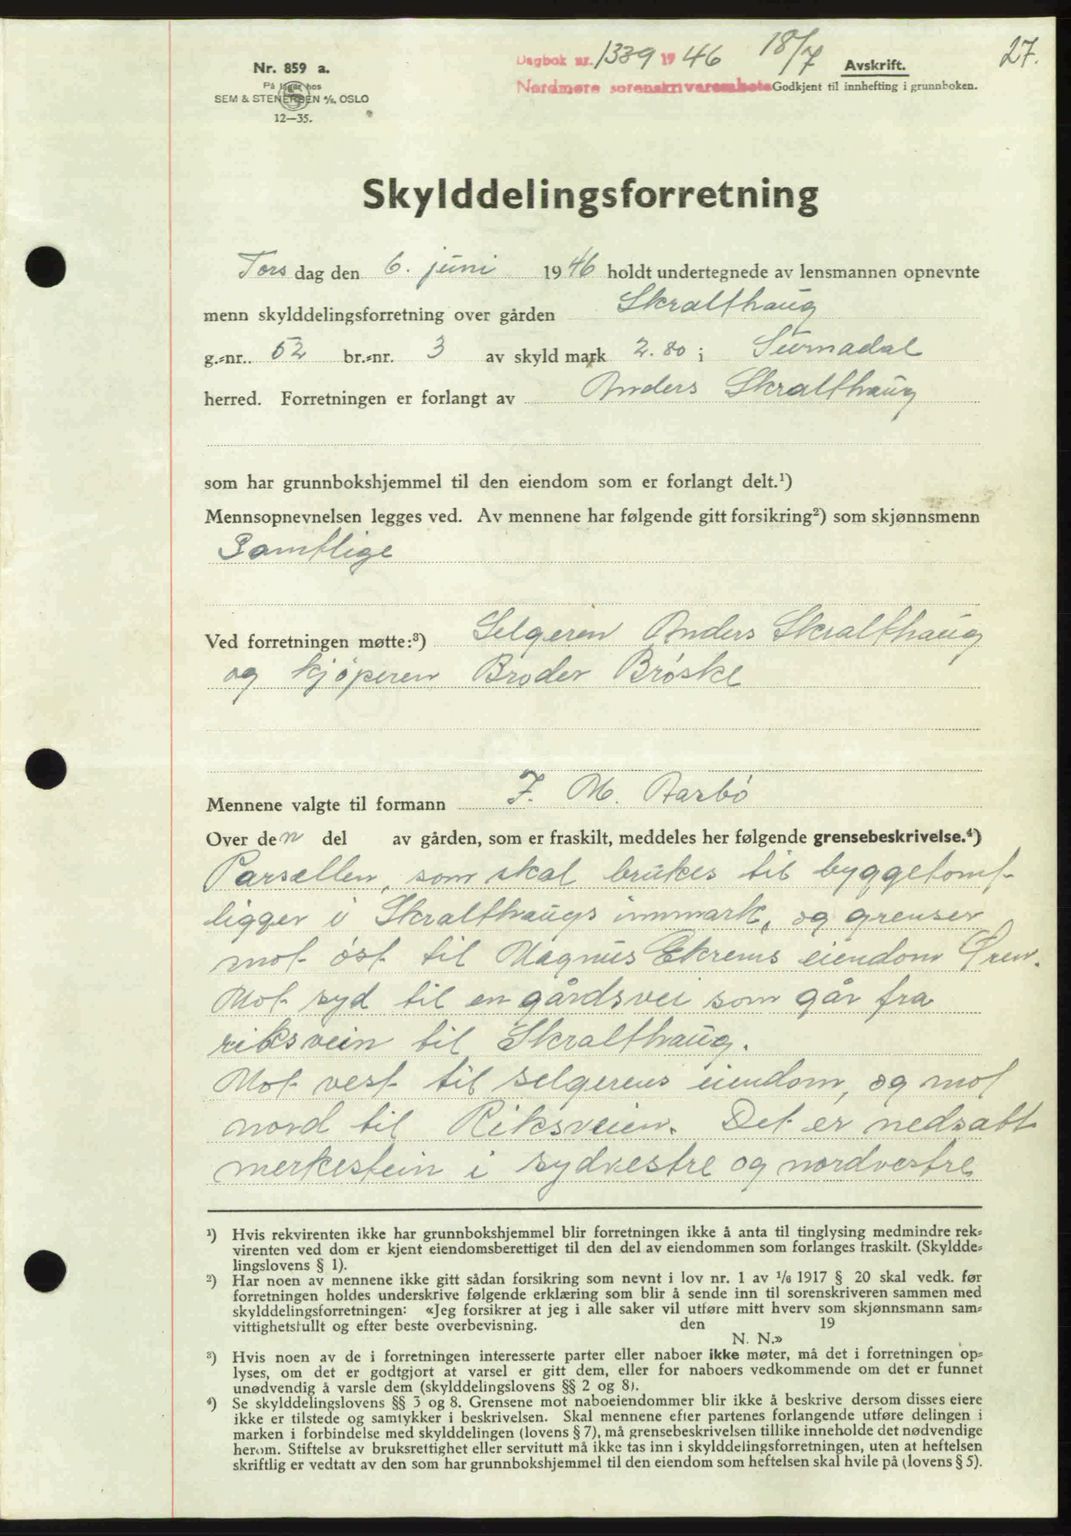 Nr. 859 a.
På lager hos
SEM & STENERSEN A/S. OSLO
12—35.
Dagbok nr. 1339 1946 18/7
Nordmøre sorenskriverembete
Avskrift.
Godkjent til innhefting i grunnboken.
27.
Skylddelingsforretning
Tors dag den 6. juni 1946 holdt undertegnede av lensmannen opnevnte
menn skylddelingsforretning over gården Skralthaug
g.-nr. 52 br.-nr. 3 av skyld mark 2.80 i Surnadal
herred. Forretningen er forlangt av Anders Skralthaug
som har grunnbokshjemmel til den eiendom som er forlangt delt.¹)
Mennsopnevnelsen legges ved. Av mennene har følgende gitt forsikring²) som skjønnsmenn
Samtlige
Ved forretningen møtte:³) Selgeren Anders Skralthaug
og kjøperen Broder Brøske
Mennene valgte til formann J. M. Aarbø
Over den del av gården, som er fraskilt, meddeles her følgende grensebeskrivelse.⁴)
Parsellen, som skal brukes til byggetomt
ligger i Skralthaugs innmark, og grenser
mot øst til Magnus Ekrems eiendom Øren.
Mot syd til en gårdsvei som går fra
riksvein til Skralthaug.
Mot vest til selgerens eiendom, og mot
nord til Riksveien. Det er nedsatt
merkestein i sydvestre og nordvestre
¹) Hvis rekvirenten ikke har grunnbokshjemmel blir forretningen ikke å anta til tinglysing medmindre rek-
virenten ved dom er kjent eiendomsberettiget til den del av eiendommen som forlanges fraskilt. (Skyldde-
lingslovens § 1).
²) Har noen av mennene ikke gitt sådan forsikring som nevnt i lov nr. 1 av 1/6 1917 § 20 skal vedk. før
forretningen holdes underskrive følgende erklæring som blir å sende inn til sorenskriveren sammen med
skylddelingsforretningen: «Jeg forsikrer at jeg i alle saker vil utføre mitt hverv som skjønnsmann sam-
vittighetsfullt og efter beste overbevisning. den 19
N. N.»
³) Hvis noen av de i forretningen interesserte parter eller naboer ikke møter, må det i forretningen op-
lyses, om det er godtgjort at varsel er gitt dem, eller for naboers vedkommende om det er funnet
unødvendig å varsle dem (skylddelingslovens §§ 2 og 8).
⁴) Se skylddelingslovens §§ 3 og 8. Grensene mot naboeiendommer blir ikke å beskrive dersom disses eiere
ikke er tilstede og samtykker i beskrivelsen. Skal mennene efter partenes forlangende utføre delingen i
marken i forbindelse med skylddelingen (lovens § 7), må grensebeskrivelsen tillike inneholde det nødvendige
herom. Stiftelse av bruksrettighet eller servitutt må ikke tas inn i skylddelingsforretningen, uten at heftelsen
skriftlig er vedtatt av den som har grunnbokshjemmel til den eiendom som heftelsen skal hvile på (lovens § 5).